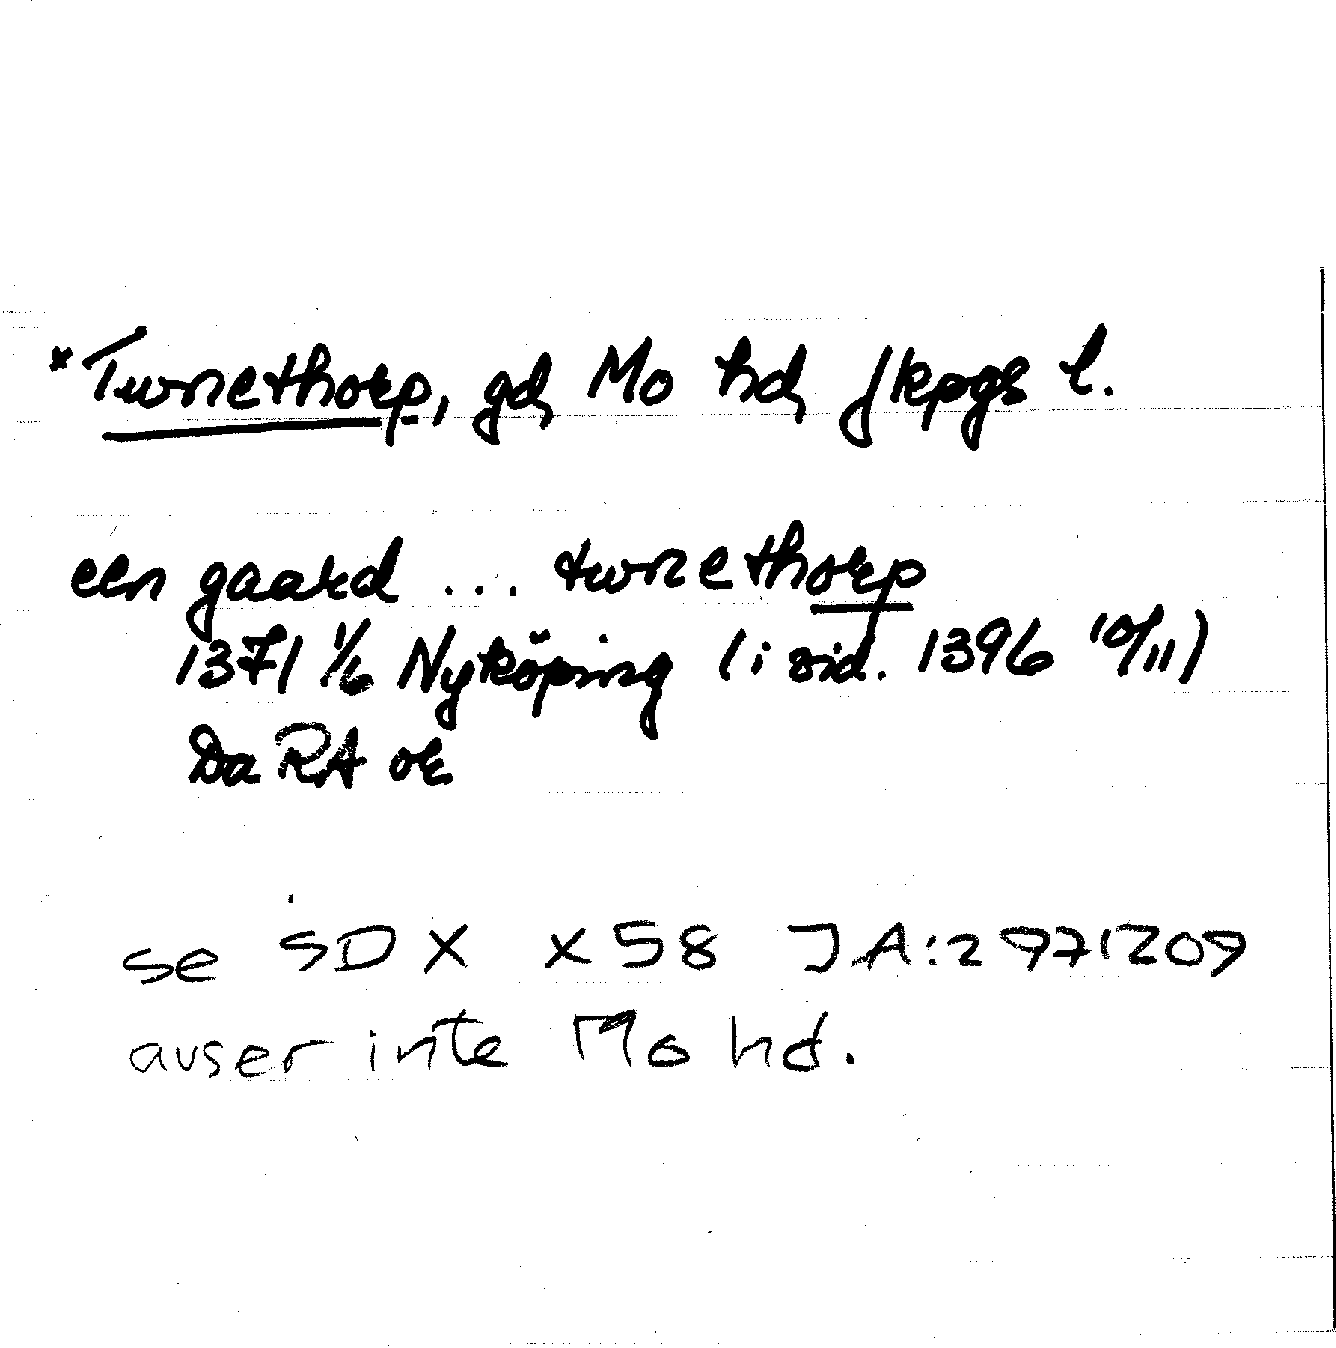 *Turnethorp, gd, Mo hd, Jkpgs l.
een gaard ... turnethorp
1371 1/6 Nyköping (i vid. 1396 10/11)
Da RA or
se SD X x 58 JA:2971209
avser inte Mo hd.